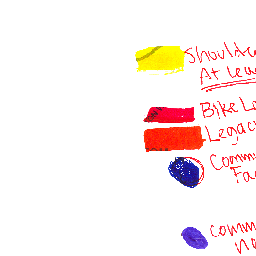 Should
At lea
Bike L
Legac
Comm
Fa
comm
no